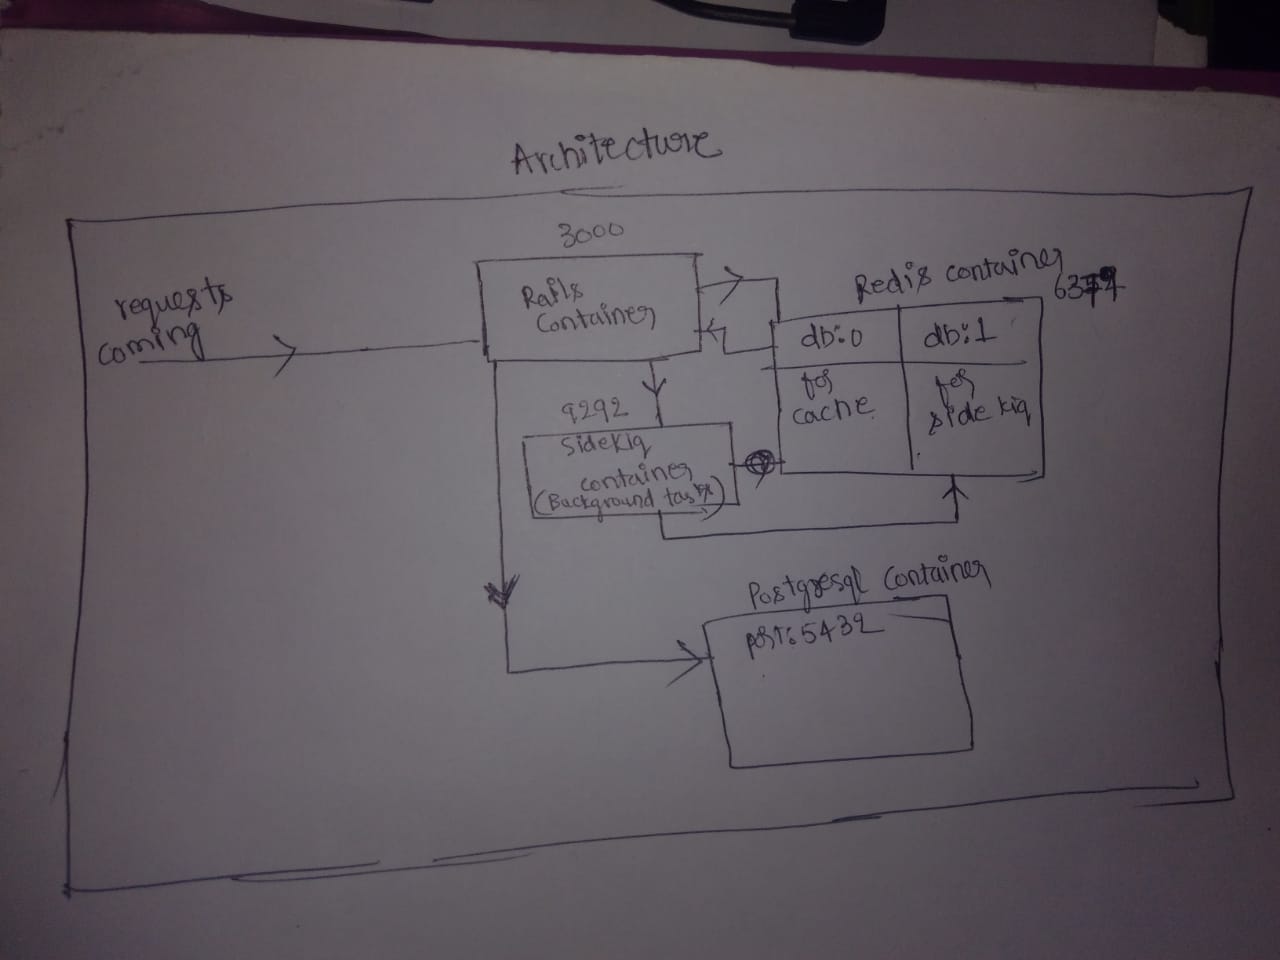 Architecture
requests
coming
3000
Rails
Container
Redis container
6379
db:0
db:1
for
cache
for
sidekiq
9292
Sidekiq
container
(Background tasks)
Postgresql Container
port:5432